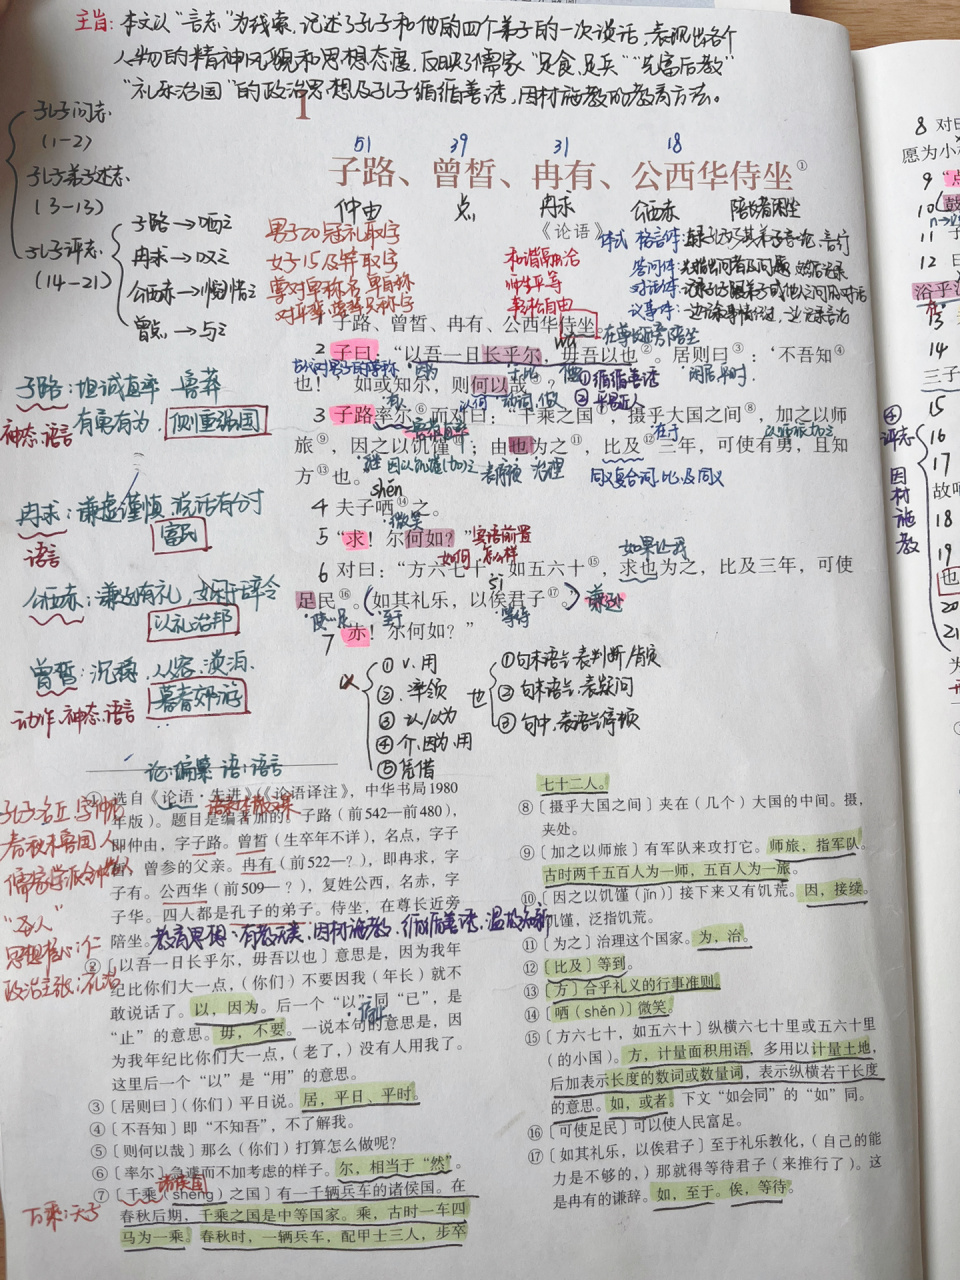 主旨：本文以“言志”为线索，记述了孔子和他的四个弟子的一次谈话，表现出各个
人物的精神风貌和思想态度，反映了儒家“足食，足兵”“先富后教”
“礼乐治国”的政治思想及孔子循循善诱，因材施教的教育方法。
1
孔子问志
(1-2)
孔子弟子述志
(3-13)
孔子评志
(14-21)
子路→哂之
冉求→叹之
公西赤→惋惜之
曾点→与之
51 39 31 18
子路、曾皙、冉有、公西华侍坐①
仲由 点 冉求 公西赤 陪长者闲坐
《论语》
男子20冠礼取字
女子15及笄取字
尊对卑称名，卑自称
和谐融洽
师生平等
轻松自由
子路、曾皙、冉有、公西华侍坐。
在尊长近旁陪坐
2 子曰：“以吾一日长乎尔，毋吾以也②。居则曰③：‘不吾知④
也！’如或知尔，则何以哉⑤？”
①循循善诱
②平易近人
闲居，平时.
3 子路率尔⑥而对曰：“千乘之国⑦，摄乎大国之间⑧，加之以师
旅⑨，因之以饥馑⑩；由也为之⑪，比及⑫三年，可使有勇，且知
方⑬也。”
同义复合词，比、及同义
shěn
4 夫子哂⑭之。
微笑
5 “求！尔何如？”
宾语前置
如何，怎么样
如果让我
6 对曰：“方六七十，如五六十⑮，求也为之，比及三年，可使
足民⑯。如其礼乐，以俟君子⑰。”
谦逊
至于 等待
7 “赤！尔何如？”
子路：坦诚直率 鲁莽
有勇有为，
神态、语言
冉求：谦虚谨慎 说话有分寸
富民
语言
公西赤：谦逊有礼、娴于辞令
以礼治邦
曾皙：沉稳，从容，淡泊、
暮春郊游
动作、神态、语言
以
①v. 用
②. 率领
③以/以为
④介，因为，用
⑤凭借
也
①句末语气，表判断/肯定
②句末语气，表疑问
③句中，表语气停顿
论：编纂 语：语言
孔子名丘，字仲尼
春秋末鲁国人
“圣人”
思想核心：仁
政治主张：礼治
①选自《论语·先进》（《论语译注》，中华书局1980
年版）。题目是编者加的。子路（前542—前480），
即仲由，字子路。曾皙（生卒年不详），名点，字子
皙，曾参的父亲。冉有（前522—？），即冉求，字
子有。公西华（前509—？），复姓公西，名赤，字
子华。四人都是孔子的弟子。侍坐，在尊长近旁
陪坐。
教育思想：有教无类，因材施教，循循善诱，温故知新
②〔以吾一日长乎尔，毋吾以也〕意思是，因为我年
纪比你们大一点，（你们）不要因我（年长）就不
敢说话了。以，因为。后一个“以”同“已”，是
“止”的意思。毋，不要。一说本句的意思是，因
为我年纪比你们大一点，（老了，）没有人用我了。
这里后一个“以”是“用”的意思。
③〔居则曰〕（你们）平日说。居，平日、平时。
④〔不吾知〕即“不知吾”，不了解我。
⑤〔则何以哉〕那么（你们）打算怎么做呢？
⑥〔率尔〕急遽而不加考虑的样子。尔，相当于“然”。
诸侯国
⑦〔千乘（shèng）之国〕有一千辆兵车的诸侯国。在
春秋后期，千乘之国是中等国家。乘，古时一车四
马为一乘。春秋时，一辆兵车，配甲士三人，步卒
万乘：天子
七十二人。
⑧〔摄乎大国之间〕夹在（几个）大国的中间。摄，
夹处。
⑨〔加之以师旅〕有军队来攻打它。师旅，指军队。
古时两千五百人为一师，五百人为一旅。
⑩〔因之以饥馑（jǐn）〕接下来又有饥荒。因，接续。
饥馑，泛指饥荒。
⑪〔为之〕治理这个国家。为，治。
⑫〔比及〕等到。
⑬〔方〕合乎礼义的行事准则。
⑭〔哂（shěn）〕微笑。
⑮〔方六七十，如五六十〕纵横六七十里或五六十里
（的小国）。方，计量面积用语，多用以计量土地，
后加表示长度的数词或数量词，表示纵横若干长度
的意思。如，或者。下文“如会同”的“如”同。
⑯〔可使足民〕可以使人民富足。
⑰〔如其礼乐，以俟君子〕至于礼乐教化，（自己的能
力是不够的，）那就得等待君子（来推行了）。这
是冉有的谦辞。如，至于。俟，等待。
8 对曰
愿为小
9 “点
10
11
12
浴乎
13
14
三子
15
16
17
故
18
19
也
20
21
④
评志
因材施教